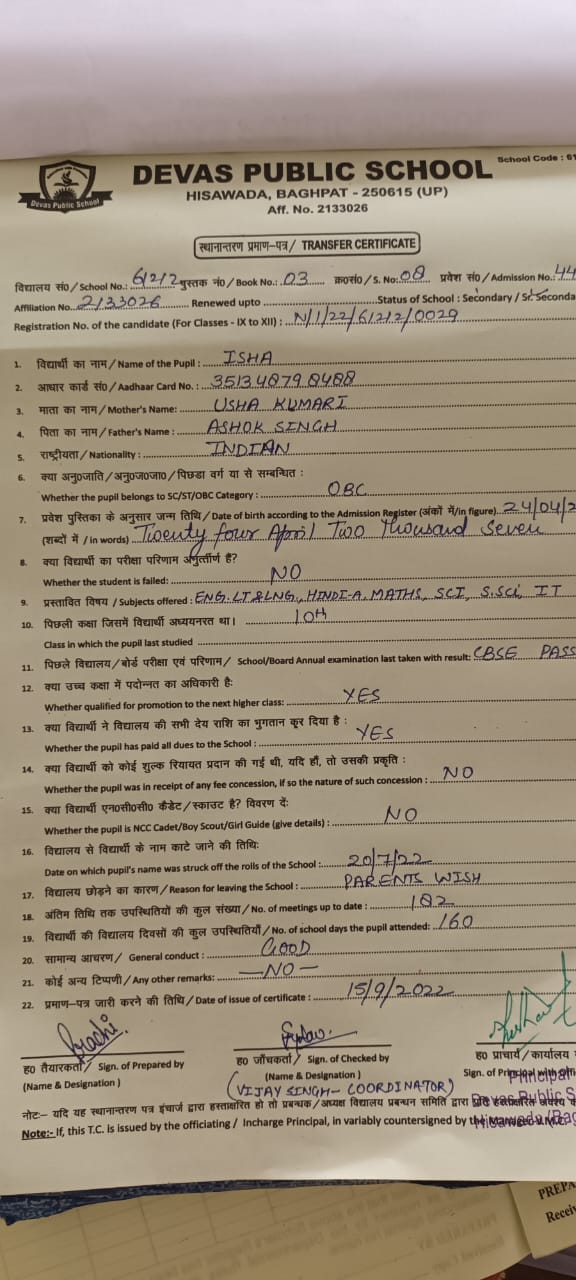 School Code : 61
DEVAS PUBLIC SCHOOL
Devas Public School
HISAWADA, BAGHPAT - 250615 (UP)
Aff. No. 2133026
स्थानान्तरण प्रमाण-पत्र/ TRANSFER CERTIFICATE
विद्यालय सं०/School No.: 61212 पुस्तक नं०/Book No.: 03 क्र०सं०/S. No: 08 प्रवेश सं०/Admission No.: 44
Affiliation No. 2133026 Renewed upto Status of School : Secondary / Sr. Seconda
Registration No. of the candidate (For Classes - IX to XII) : N/1/22/61212/0029
1. विद्यार्थी का नाम/Name of the Pupil : ISHA
2. आधार कार्ड सं०/Aadhaar Card No. : 3513 4879 8488
3. माता का नाम/Mother's Name: USHA KUMARI
4. पिता का नाम/Father's Name : ASHOK SINGH
5. राष्ट्रीयता/Nationality : INDIAN
6. क्या अनु०जाति/अनु०ज०जा०/पिछडा वर्ग या से सम्बन्धित :
Whether the pupil belongs to SC/ST/OBC Category : OBC
7. प्रवेश पुस्तिका के अनुसार जन्म तिथि/Date of birth according to the Admission Register (अंकों में/in figure) 24/04/2
(शब्दों में / in words) Twenty four April Two thousand Seven
8. क्या विद्यार्थी का परीक्षा परिणाम अनुत्तीर्ण है?
Whether the student is failed: NO
9. प्रस्तावित विषय/Subjects offered : ENG. LT & LNG., HINDI-A, MATHS, SCI, S.Sci, IT
10. पिछली कक्षा जिसमें विद्यार्थी अध्ययनरत था। 10th
Class in which the pupil last studied
11. पिछले विद्यालय/बोर्ड परीक्षा एवं परिणाम/ School/Board Annual examination last taken with result: CBSE PASS
12. क्या उच्च कक्षा में पदोन्नत का अधिकारी है:
Whether qualified for promotion to the next higher class: YES
13. क्या विद्यार्थी ने विद्यालय की सभी देय राशि का भुगतान कर दिया है :
Whether the pupil has paid all dues to the School : YES
14. क्या विद्यार्थी को कोई शुल्क रियायत प्रदान की गई थी, यदि हाँ, तो उसकी प्रकृति :
Whether the pupil was in receipt of any fee concession, if so the nature of such concession : NO
15. क्या विद्यार्थी एन०सी०सी० कैडेट/स्काउट है? विवरण दें:
Whether the pupil is NCC Cadet/Boy Scout/Girl Guide (give details) : NO
16. विद्यालय से विद्यार्थी के नाम काटे जाने की तिथि:
Date on which pupil's name was struck off the rolls of the School : 20/7/22
17. विद्यालय छोड़ने का कारण/Reason for leaving the School : PARENTS WISH
18. अंतिम तिथि तक उपस्थितियों की कुल संख्या/No. of meetings up to date : 182
19. विद्यार्थी की विद्यालय दिवसों की कुल उपस्थितियाँ/No. of school days the pupil attended: 160
20. सामान्य आचरण/ General conduct : GOOD
21. कोई अन्य टिप्पणी/Any other remarks: —NO—
22. प्रमाण-पत्र जारी करने की तिथि/Date of issue of certificate : 15/9/2022
Prachi
ह० तैयारकर्ता/ Sign. of Prepared by ह० जाँचकर्ता/ Sign. of Checked by ह० प्राचार्य/कार्यालय
(Name & Designation) (Name & Designation) Sign. of Principal with offi
Principal
(VIJAY SINGH - COORDINATOR)
Devas Public S
नोटः- यदि यह स्थानान्तरण पत्र इंचार्ज द्वारा हस्ताक्षरित हो तो प्रबन्धक/अध्यक्ष विद्यालय प्रबन्धन समिति द्वारा
Hisawada (Bag
Note:- If, this T.C. is issued by the officiating / Incharge Principal, in variably countersigned by the Manager
PREPA
Recei